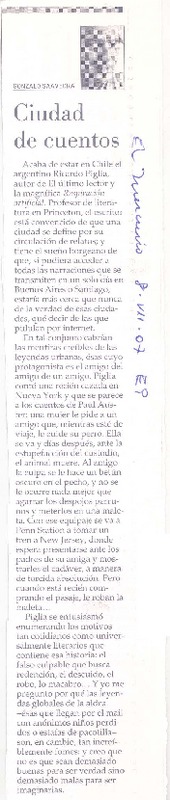 GONZALO SAAVEDRA
Ciudad
de cuentos
Acaba de estar en Chile el
argentino Ricardo Piglia,
autor de El último lector y
la magnífica Respiración
artificial. Profesor de litera-
tura en Princeton, el escritor
está convencido de que una
ciudad se define por su
circulación de relatos; y
tiene el sueño borgeano de
que, si pudiera acceder a
todas las narraciones que se
transmiten en un solo día en
Buenos Aires o Santiago,
estaría más cerca que nunca
de la verdad de esas ciuda-
des, qué decir de las que
pululan por internet.
En tal conjunto cabrían
las mentiras creíbles de las
leyendas urbanas, ésas cuyo
protagonista es el amigo del
amigo de un amigo. Piglia
contó una recién cazada en
Nueva York y que se parece
a los cuentos de Paul Aus-
ter: una mujer le pide a un
amigo que, mientras esté de
viaje, le cuide su perro. Ella
se va y días después, ante la
estupefacción del custodio,
el animal muere. Al amigo
la culpa se le hace un belén
oscuro en el pecho, y no se
le ocurre nada mejor que
agarrar los despojos perru-
nos y meterlos en una male-
ta. Con ese equipaje se va a
Penn Station a tomar un
tren a New Jersey, donde
espera presentarse ante los
padres de su amiga y mos-
trarles el cadáver, a manera
de torcida absolución. Pero
cuando está recién com-
prando el pasaje, le roban la
maleta...
Piglia se entusiasmó
enumerando los motivos
tan cotidianos como univer-
salmente literarios que
contiene esa historia: el
falso culpable que busca
redención, el descuido, el
robo, lo macabro... Y yo me
pregunto por qué las leyen-
das globales de la aldea
–ésas que llegan por el mail
con anónimos niños perdi-
dos o estafas de pacotilla–
son, en cambio, tan increí-
blemente fomes; y creo que
no es que sean demasiado
buenas para ser verdad sino
demasiado malas para ser
imaginarias.
El Mercurio 8-VII-07 E9